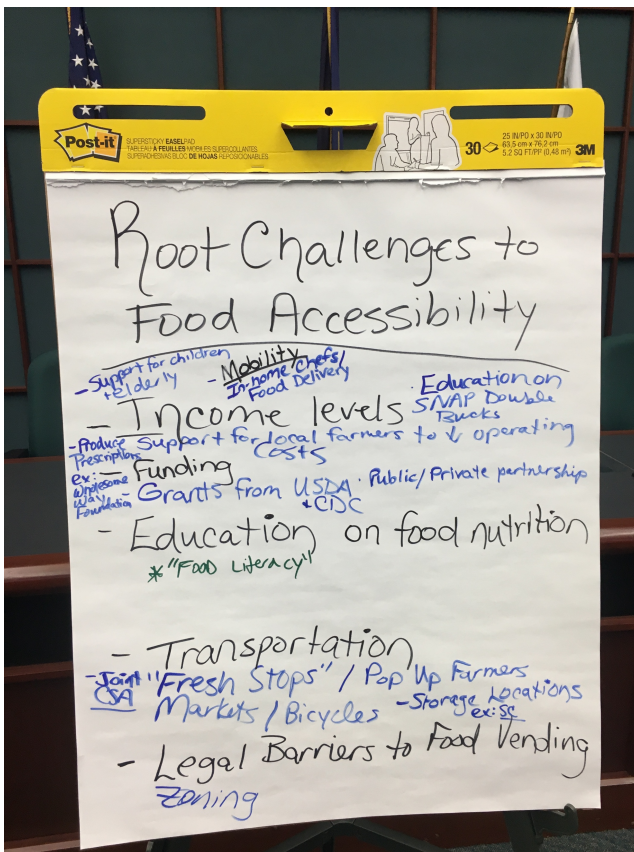 Post-it
SUPERSTICKY EASELPAD
TABLEAU À FEUILLES MOBILES SUPERCOLLANTES
SUPERADHESIVAS BLOC DE HOJAS REPOSICIONABLES
30
25 IN/PO x 30 IN/PO
63,5 cm x 76,2 cm
5.2 SQ FT/PP (0,48 m²)
3M
Root Challenges to
Food Accessibility
- Support for children
+ elderly
- Mobility
In-home Chefs/
Food Delivery
· Education on
SNAP Double
Bucks
- Income levels
- Produce
Prescriptions
ex:
Wholesome
Way
Foundation
Support for local farmers to ↓ operating
costs
- Funding
- Grants from USDA
+ CDC
· Public/Private partnership
- Education on food nutrition
* "Food Literacy"
- Transportation
- Joint
CSA
"Fresh Stops" / Pop Up Farmers
Markets / Bicycles
- Storage Locations
ex: SC
- Legal Barriers to Food Vending
Zoning